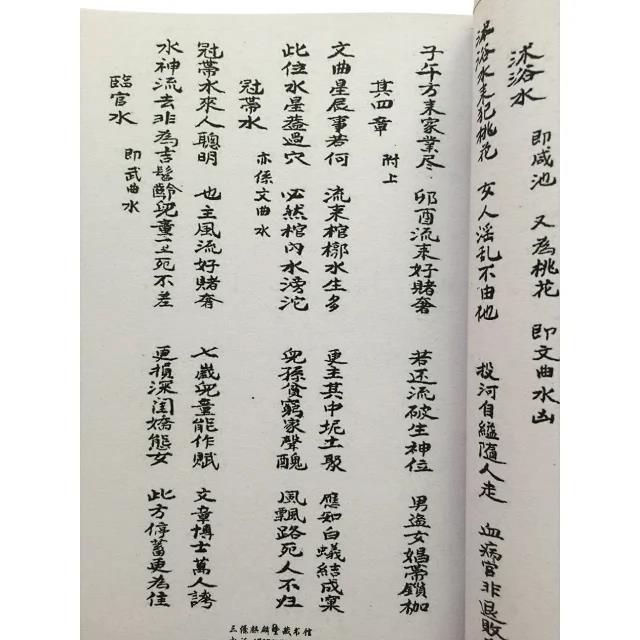 沐浴水 即咸池 又為桃花 即文曲水凶
沐浴水来犯桃花 女人淫乱不由他 投河自縊隨人走 血病官非退敗
子午方来家業尽 卯酉流来好賭奢 若还流破生神位 男盗女娼帶鎖枷
其四章 附上
文曲星辰事若何 流来棺槨水生多 更主其中坭土聚 應知白蟻結成窠
此位水星蓋過穴 必然棺內水滂沱 兒孫貧窮家聲醜 風飄路死人不归
冠帶水 亦係文曲水
冠帶水來人聰明 也主風流好賭奢 七歲兒童能作賦 文章博士萬人誇
水神流去非為吉 髫齡兒童亡死不差 更損深閨嬌態女 此方停蓄更為佳
臨官水 即武曲水
三條麒麟堂藏书馆